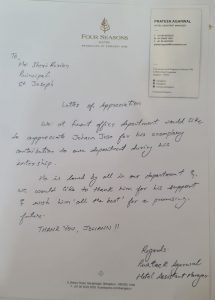 FOUR SEASONS
HOTEL
PRATEEK AGARWAL
HOTEL ASSISTANT MANAGER
To,
Principal
St Joseph
Letter of Appreciation
We at front office department would like
to appreciate Johann Jose for his exemplary
contribution to our department during his
internship.
He is loved by all in our department &
we would like to thank him for his support
& wish him 'all the best' for a promising
future.
THANK YOU, JOHANN !!
Regards
Prateek Agarwal
Hotel Assistant Manager